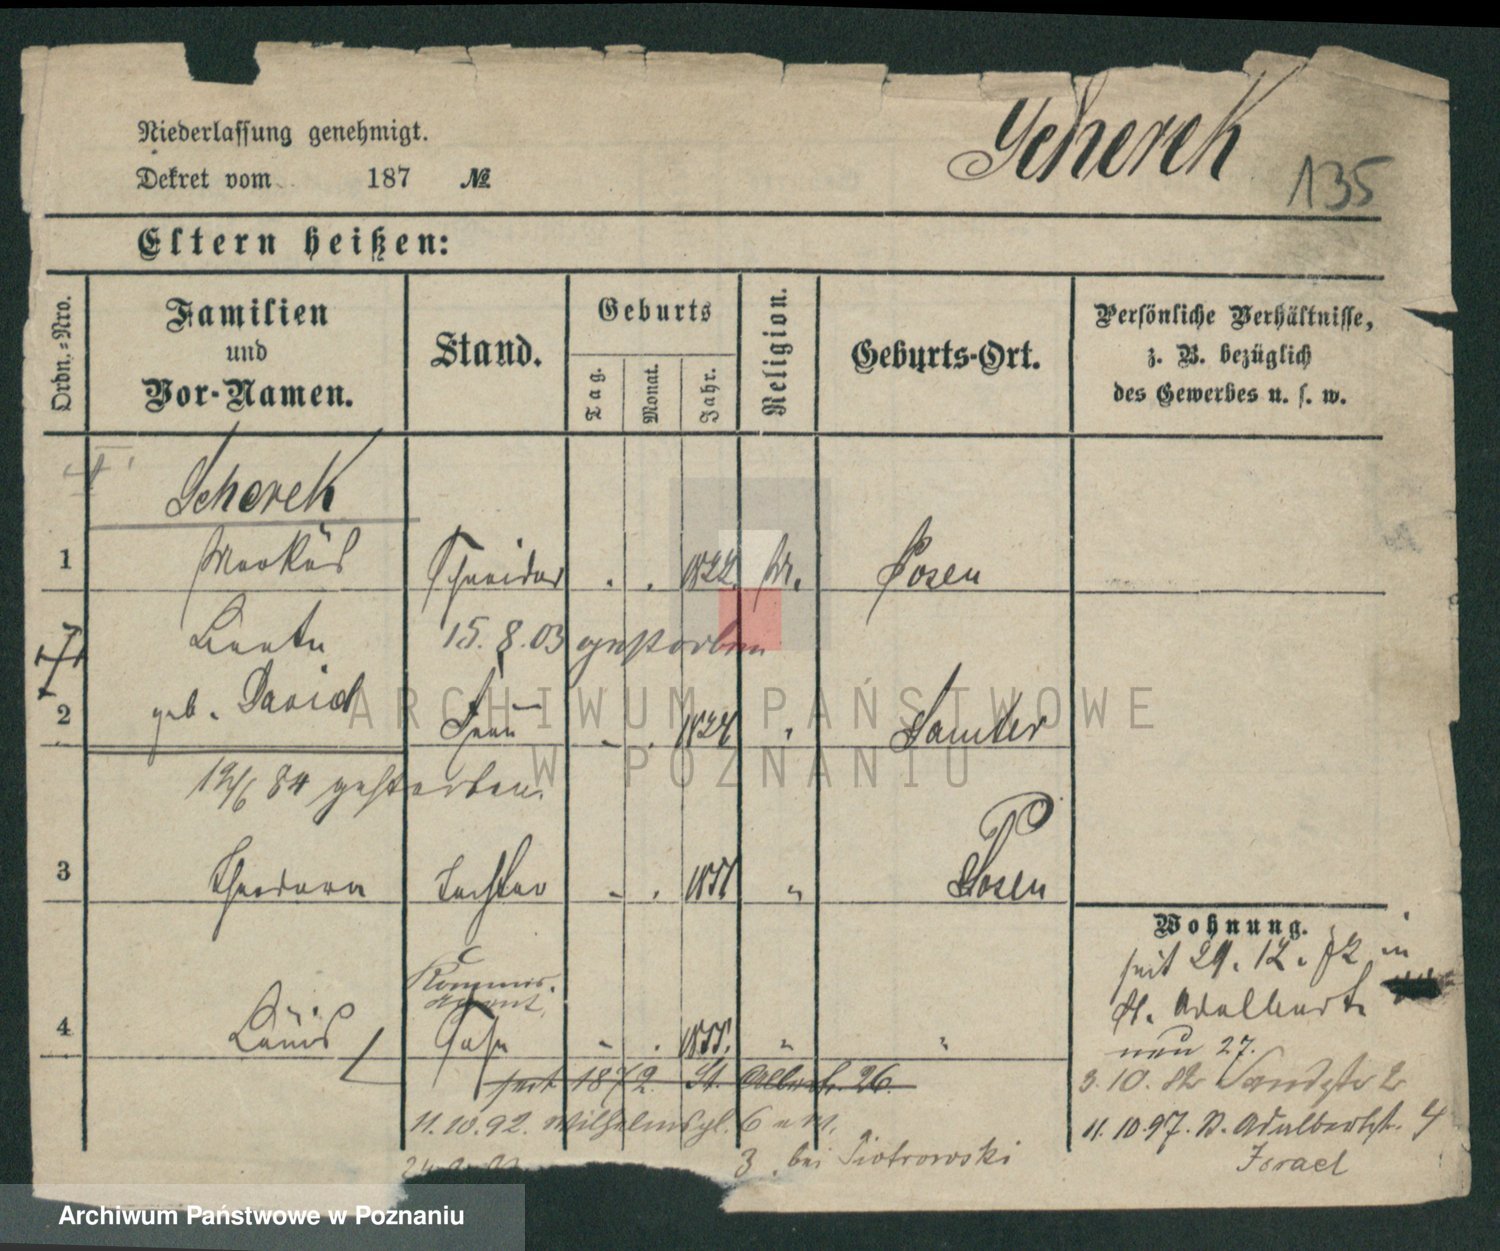 Niederlassung genehmigt.
Dekret vom 187 №
Scherek
135
Eltern heißen:
Ordn.-Nro.
Familien
und
Vor-Namen.
Stand.
Geburts
Tag.
Monat.
Jahr.
Religion.
Geburts-Ort.
Persönliche Verhältnisse,
z. B. bezüglich
des Gewerbes u. s. w.
Scherek
1 Markus Schneider . . 1822. M. Posen
15. 8. 03 gestorben
geb. David
2 Frau - . 1824 " Samter
ARCHIWUM PAŃSTWOWE
W POZNANIU
84 gestorben.
3 Theodora Tochter - . " Posen
Wohnung.
seit 29. 12. 82 in
St. Adalbert.
neu 27.
Kommis.
4 Louis Sohn - . 1855. " "
seit 1872 St. Adlbertstr. 26.
3. 10. Sandstr 2
11. 10. 92. Wilhelmspl. 6
11. 10. 97. St. Adalbertstr. 4
3. bei Piotrowski
Israel
Archiwum Państwowe w Poznaniu